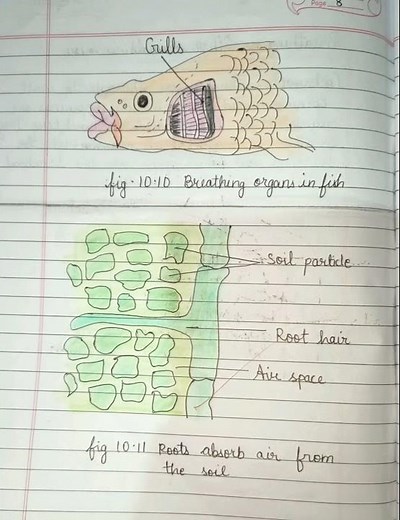 Page 8
Gills
fig · 10·10 Breathing organs in fish
Soil particle
Root hair
Air space
fig 10·11 Roots absorb air from
the soil